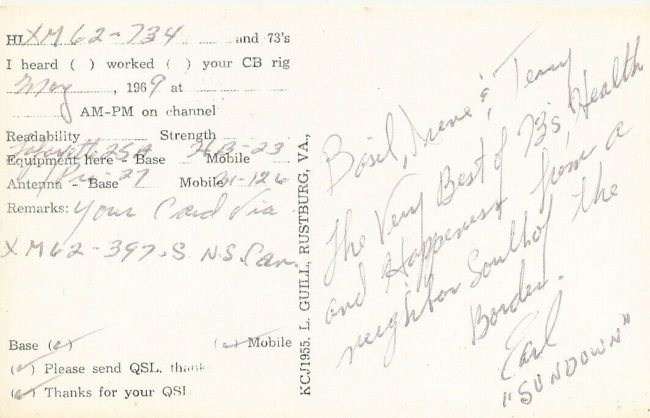 HI XM62-734 and 73's
I heard ( ) worked ( ) your CB rig
May, 1969 at
AM-PM on channel
Readability Strength
Lafayette 25B HB-23
Equipment here - Base Mobile
Antenna - Base Mobile M-126
Remarks: Your Card Via
XM62-397. S. N.S. Can.
Base (✓) (✓) Mobile
(✓) Please send QSL, thanks
(✓) Thanks for your QSL
KCJ1955. L. GUILL, RUSTBURG, VA.,
Basil, Irene, & Terry
The Very Best of 73's, Health
and Happeness from a
neighbor South of the
Border.
Earl
"SUNDOWN"